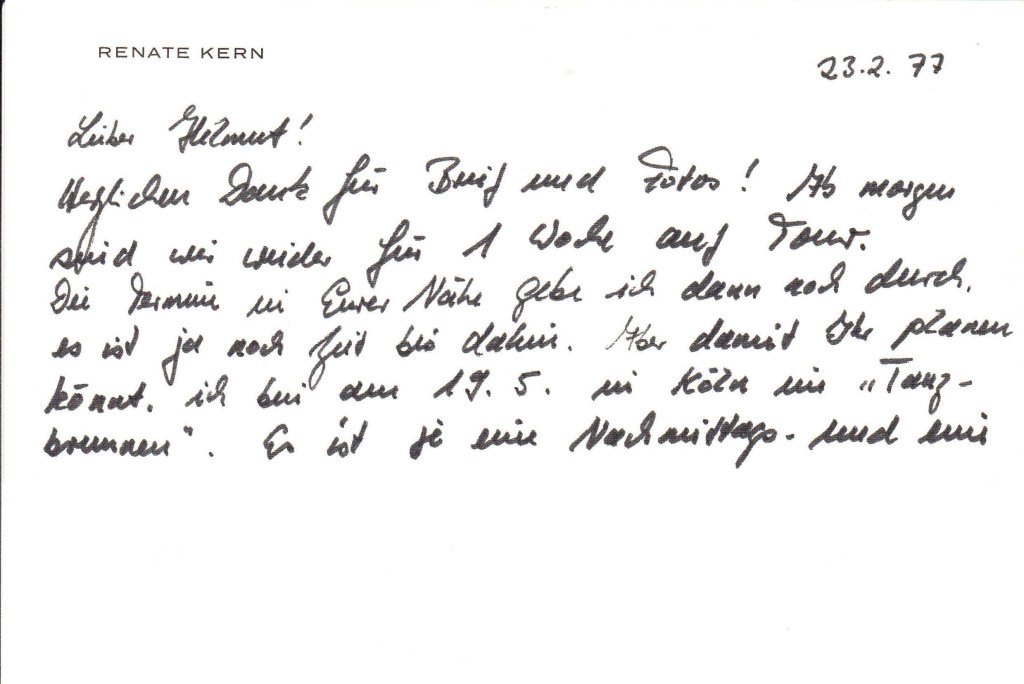 RENATE KERN
23.2.77
Lieber Helmut!
Herzlichen Dank für Brief und Fotos! Ab morgen
sind wir wieder für 1 Woche auf Tour.
Die Termine in Eurer Nähe gebe ich dann noch durch,
es ist ja noch Zeit bis dahin. Aber damit Ihr planen
könnt, ich bin am 19.5. in Köln im „Tanz-
brunnen". Es ist je eine Nachmittags- und eine